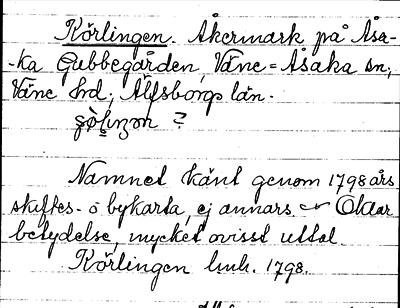 Körlingen. Åkermark på Åsa-
-ka Gubbegården, Väne-Åsaka sn,
Väne hd, Älfsborgs län.
?
Namnet känt genom 1798 års
skiftes- o bykarta, ej annars. Oklar
betydelse, mycket ovisst uttal.
Körlingen lmh. 1798.